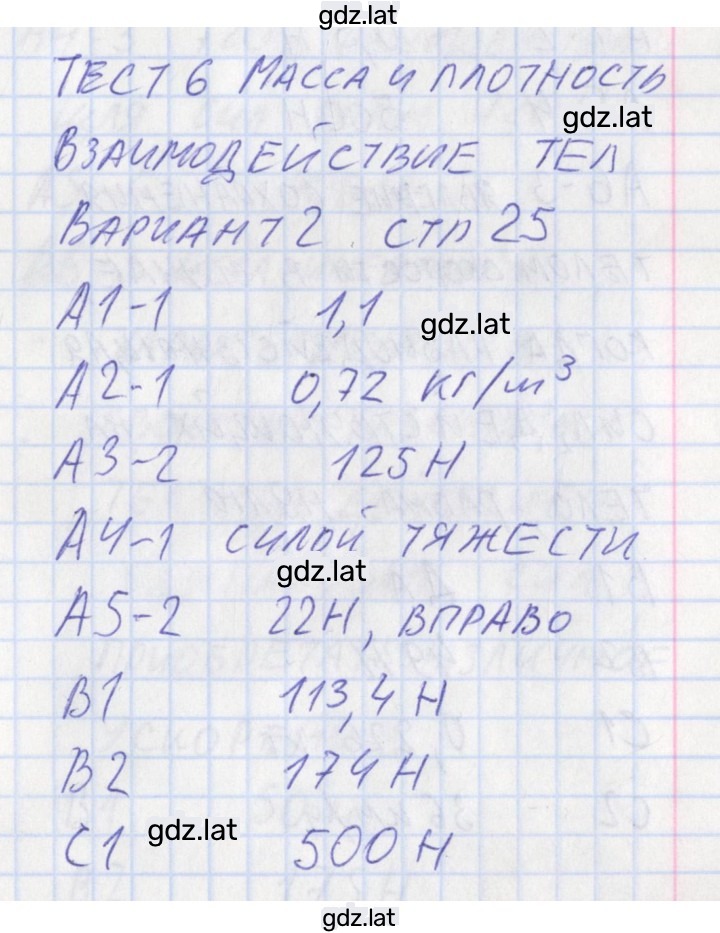 gdz.lat
ТЕСТ 6 МАССА И ПЛОТНОСТЬ
gdz.lat
ВЗАИМОДЕЙСТВИЕ ТЕЛ
ВАРИАНТ 2 СТР 25
А1-1 1,1
gdz.lat
А2-1 0,72 кг/м³
А3-2 125 Н
А4-1 СИЛОЙ ТЯЖЕСТИ
gdz.lat
А5-2 22Н, ВПРАВО
В1 113,4 Н
В2 174 Н
gdz.lat
С1 500 Н
gdz.lat